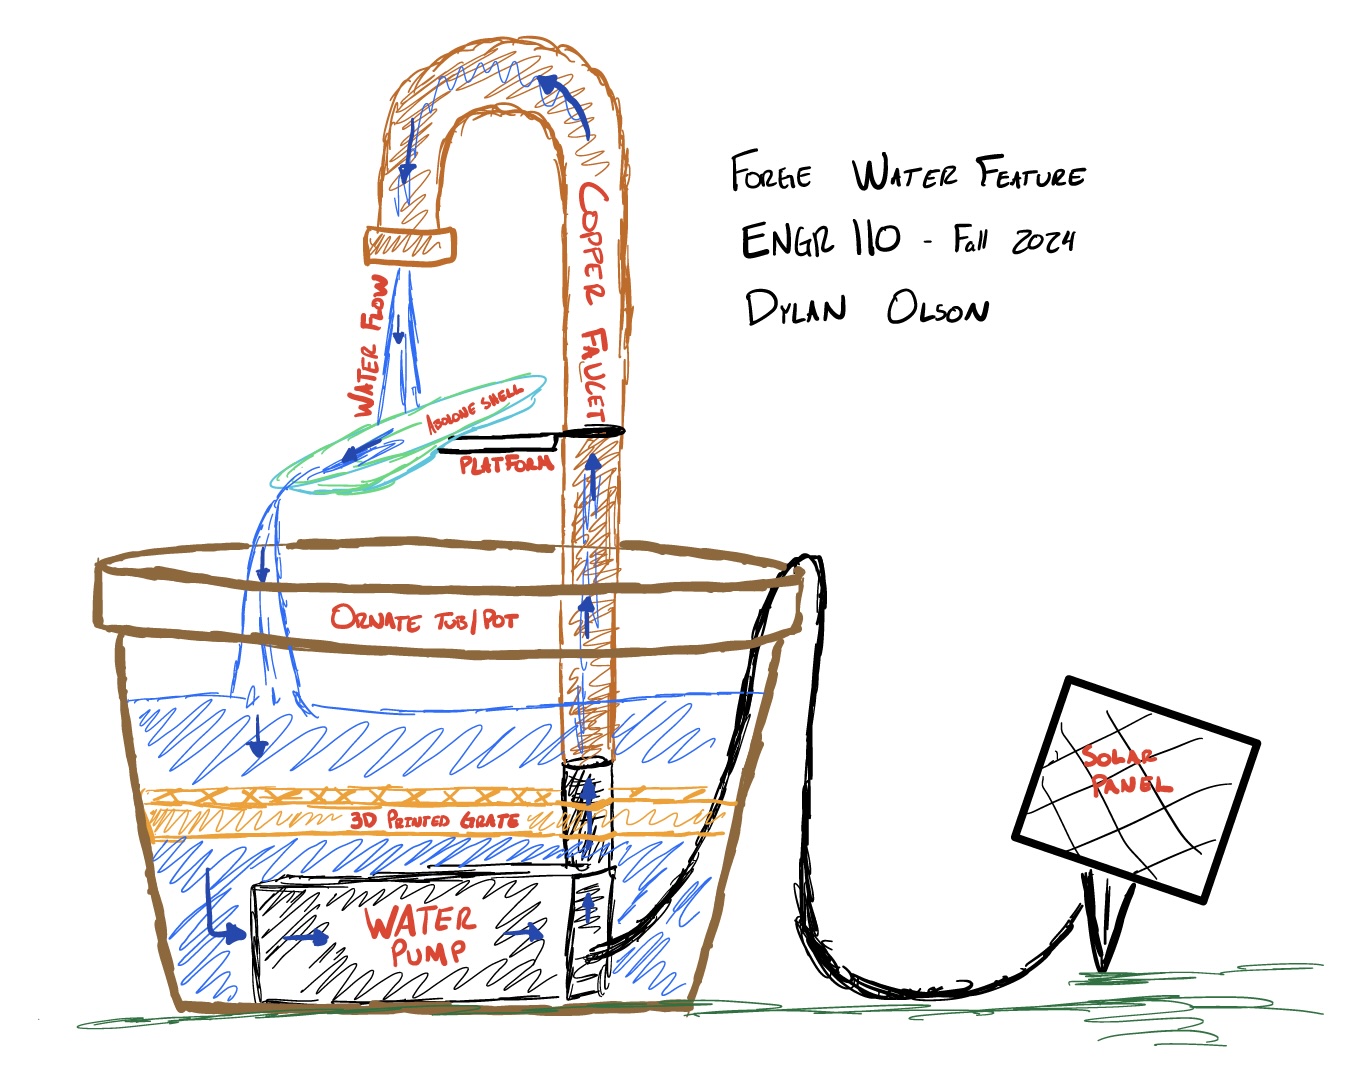 Forge Water Feature
ENGR 110 - Fall 2024
Dylan Olson
Copper Faucet
Water Flow
Abolone Shell
Platform
Ornate Tub/Pot
3D Printed Grate
Water
Pump
Solar
Panel